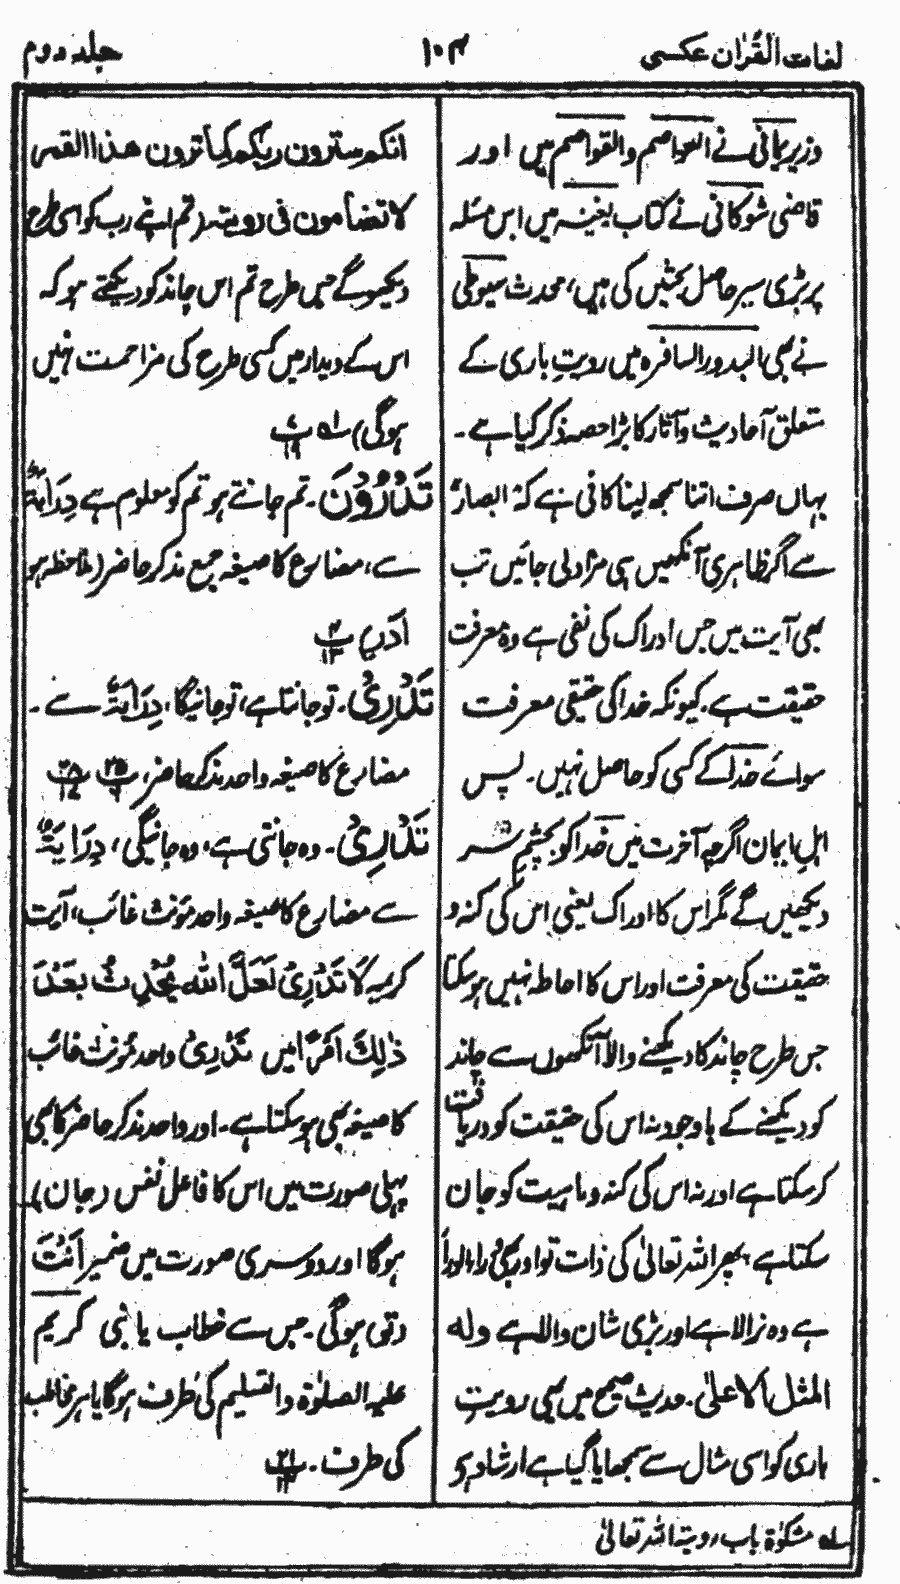 لغات القراٰن عکسی
۱۰۴
جلد دوم
وزیر یمانی نے العواصم والقواصم میں اور
قاضی شوکانی نے کتاب بغیہ میں اس مسئلہ
پر بڑی سیر حاصل بحثیں کی ہیں، محدث سیوطی
نے بھی البدور السافرہ میں رویتِ باری کے
متعلق احادیث و آثار کا بڑا حصہ ذکر کیا ہے۔
یہاں صرف اتنا سمجھ لینا کافی ہے کہ ابصار
سے اگر ظاہری آنکھیں ہی مراد لی جائیں تب
بھی آیت میں جس ادراک کی نفی ہے وہ معرفت
حقیقت ہے۔ کیونکہ خدا کی حقیقی معرفت
سوائے خدا کے کسی کو حاصل نہیں۔ پس
اہلِ ایمان اگرچہ آخرت میں خدا کو بچشمِ سر
دیکھیں گے مگر اس کا ادراک یعنی اس کی کنہ و
حقیقت کی معرفت اور اس کا احاطہ نہیں ہو سکتا
جس طرح چاند کا دیکھنے والا آنکھوں سے چاند
کو دیکھنے کے باوجود نہ اس کی حقیقت کو دریافت
کر سکتا ہے اور نہ اس کی کنہ و ماہیت کو جان
سکتا ہے پھر اللہ تعالیٰ کی ذات تو اور بھی وراء الوراء
ہے وہ نرالا ہے اور بڑی شان والا ہے وله
المثل الاعلٰی۔ حدیث صحیح میں بھی رویتِ
باری کو اسی مثال سے سمجھایا گیا ہے ارشاد ہے
انکم سترون ربکم کما ترون ھذا القمر
لا تضامون فی رویتہ (تم اپنے رب کو اسی طرح
دیکھو گے جس طرح تم اس چاند کو دیکھتے ہو کہ
اس کے دیدار میں کسی طرح کی مزاحمت نہیں
ہوگی)
تَدْرُوْنَ۔ تم جانتے ہو تم کو معلوم ہے دِرَایَۃٌ
سے، مضارع کا صیغہ جمع مذکر حاضر (ملاحظہ ہو
اَدْرِ)
تَدْرِیْ۔ تو جانتا ہے، تو جانیگا، دِرَایَۃٌ سے۔
مضارع کا صیغہ واحد مذکر حاضر،
تَدْرِیْ۔ وہ جانتی ہے، وہ جانیگی، دِرَایَۃٌ
سے مضارع کا صیغہ واحد مؤنث غائب، آیت
کریمہ لَا تَدْرِیْ لَعَلَّ اللهَ یُحْدِثُ بَعْدَ
ذٰلِكَ اَمْرًا میں تَدْرِیْ واحد مؤنث غائب
کا صیغہ بھی ہو سکتا ہے۔ اور واحد مذکر حاضر کا بھی
پہلی صورت میں اس کا فاعل نفس (جان)
ہوگا اور دوسری صورت میں ضمیر اَنْتَ
ہوگی۔ جس سے خطاب یا نبی کریم
علیہ الصلوٰۃ والتسلیم کی طرف ہوگا یا ہر مخاطب
کی طرف۔
لہ مشکوٰۃ باب رویۃ اللہ تعالیٰ